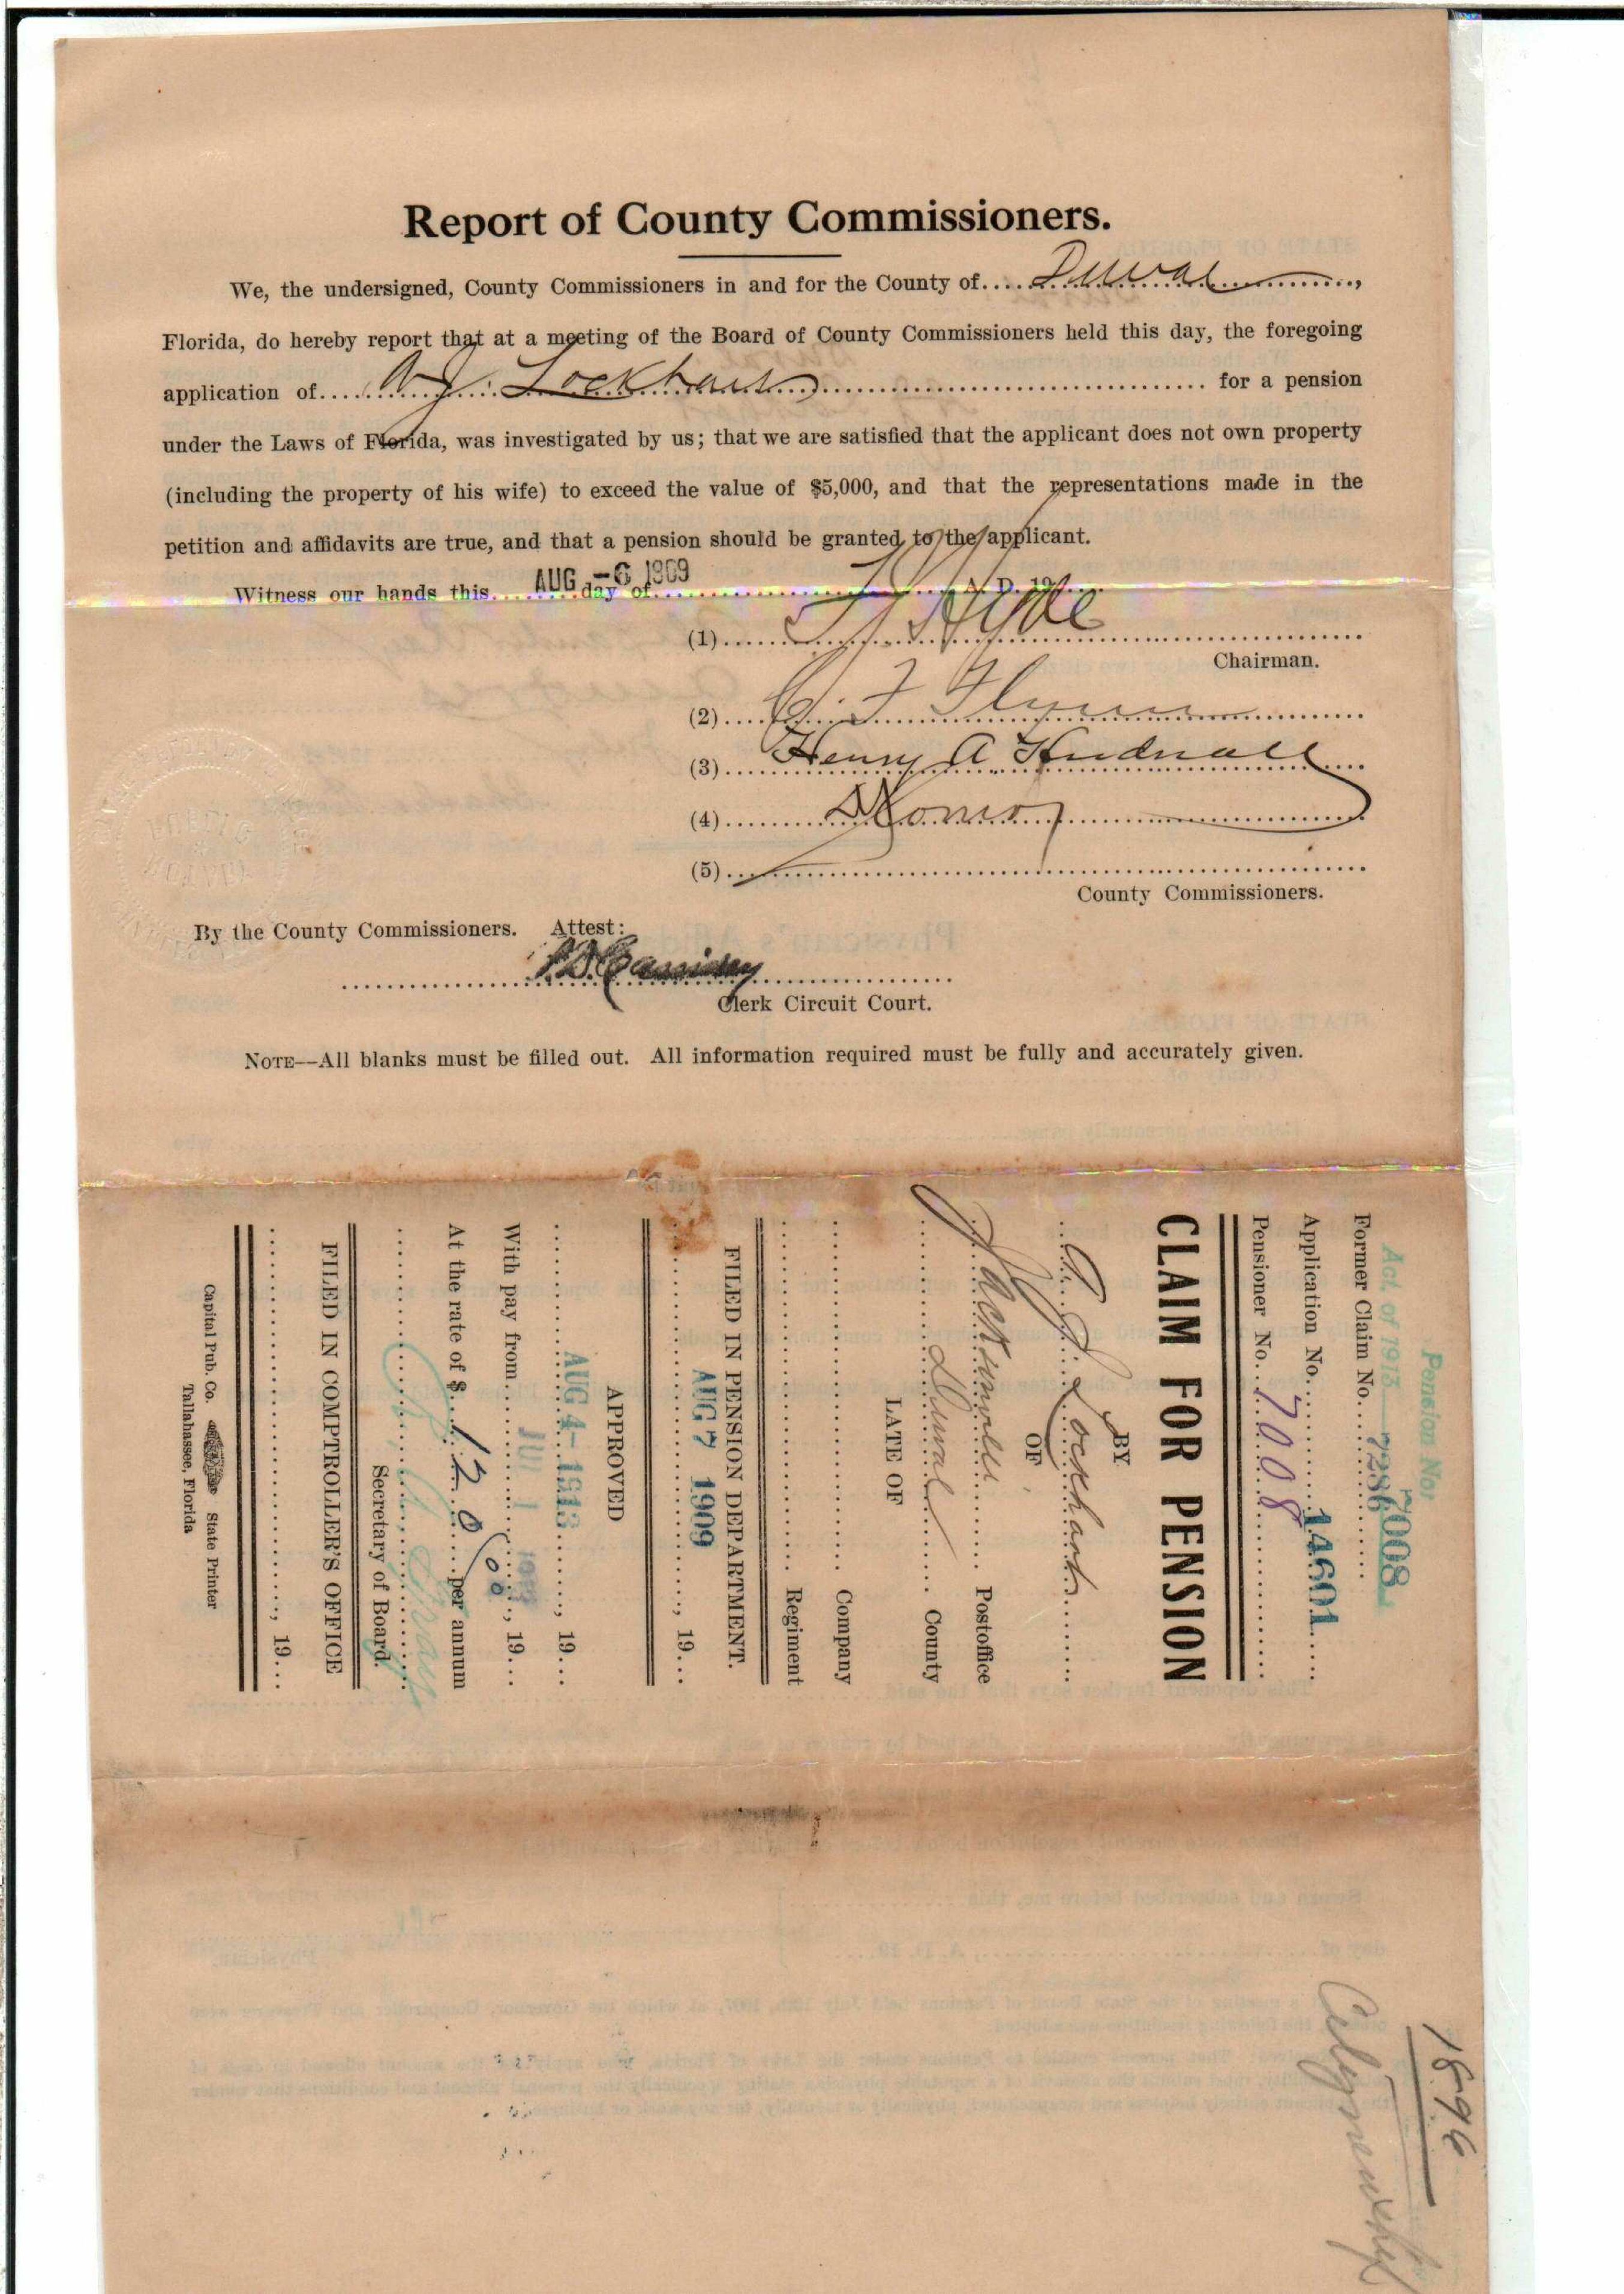 Report of County Commissioners.
We, the undersigned, County Commissioners in and for the County of.....Duval..........,
Florida, do hereby report that at a meeting of the Board of County Commissioners held this day, the foregoing
application of.... J. Lockhart .................... for a pension
under the Laws of Florida, was investigated by us; that we are satisfied that the applicant does not own property
(including the property of his wife) to exceed the value of $5,000, and that the representations made in the
petition and affidavits are true, and that a pension should be granted to the applicant.
Witness our hands this....AUG -6 1909 day of.................... A. D. 19
(1)..... Hyde ....................
Chairman.
(2).... F Flynn ....................
(3)....Henry A Hudnall....
(4)....................
(5)....................
County Commissioners.
By the County Commissioners. Attest:
P. D. Cassidey
Clerk Circuit Court.
NOTE—All blanks must be filled out. All information required must be fully and accurately given.
Pension No. 7008
Act. of 1913
Former Claim No. 7286
Application No. 14601
Pensioner No. 7008
CLAIM FOR PENSION
BY
J. Lockhart
OF
Jacksonville Postoffice
Duval County
LATE OF
Company
Regiment
FILED IN PENSION DEPARTMENT.
AUG 7 1909, 19...
APPROVED
AUG 4-1913, 19...
With pay from JUL 1, 19...
At the rate of $ 120 00 per annum
Secretary of Board.
FILED IN COMPTROLLER'S OFFICE
, 19...
Capital Pub. Co. State Printer
Tallahassee, Florida
1896